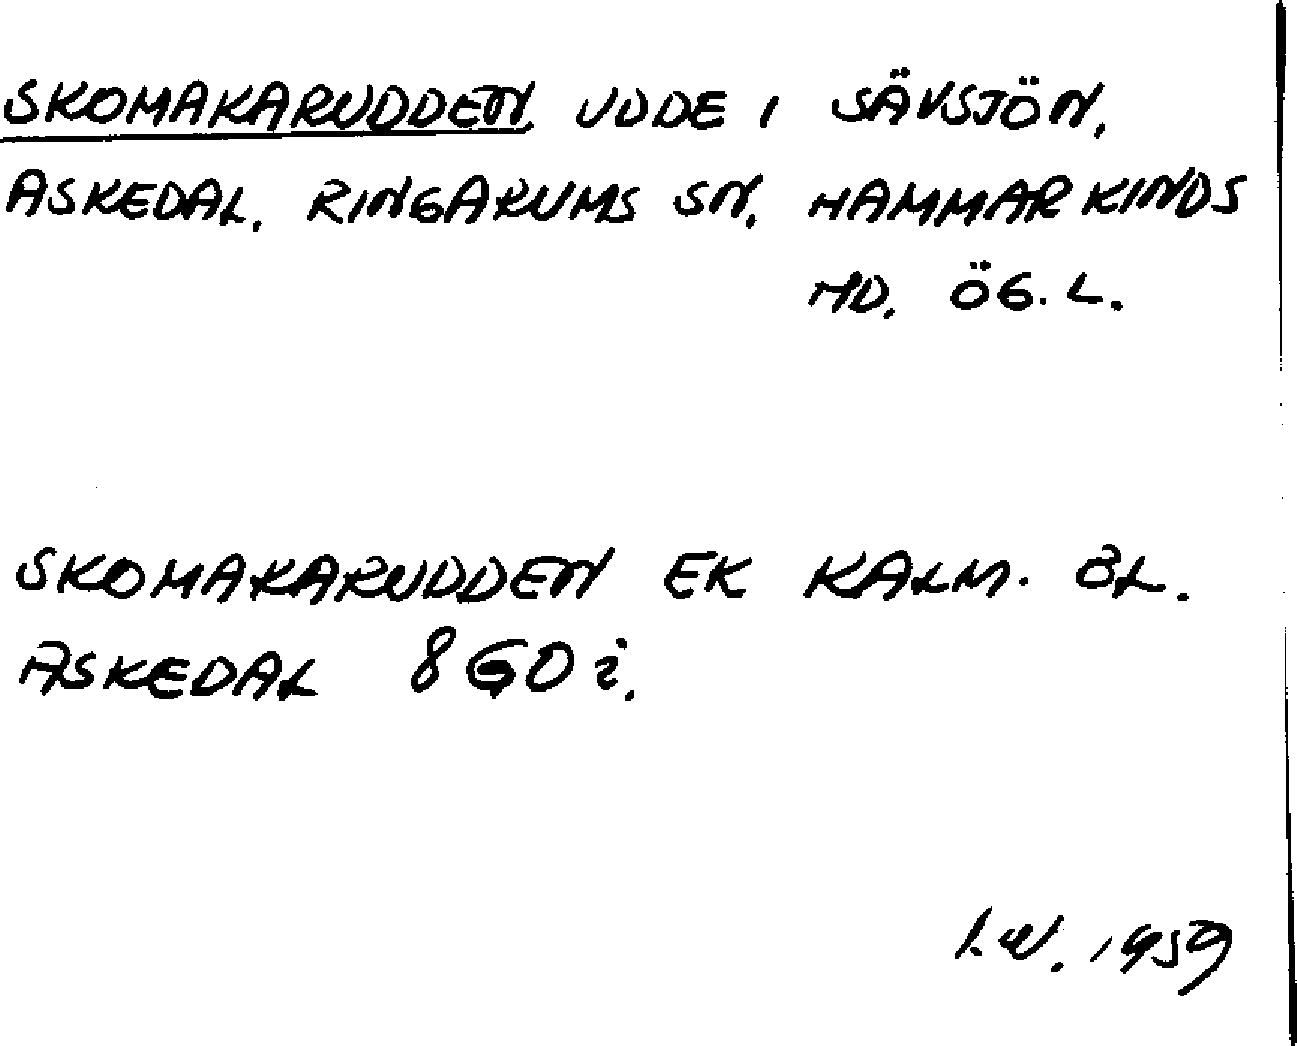 SKOMAKARUDDEN. UDDE I SÄVSJÖN,
ASKEDAL. RINGARUMS SN. HAMMARKINDS
HD. ÖG. L.
SKOMAKARUDDEN EK KALM. BL.
ASKEDAL 8 G0 i.
1959